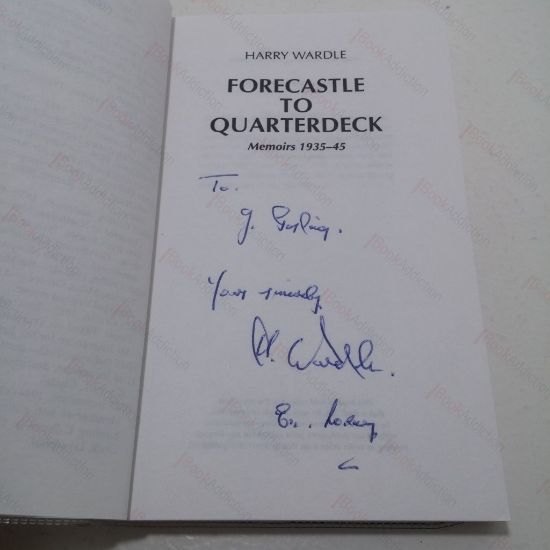 HARRY WARDLE
FORECASTLE
TO
QUARTERDECK
Memoirs 1935–45
To.
Yours sincerely
H. Wardle.
BookAddiction